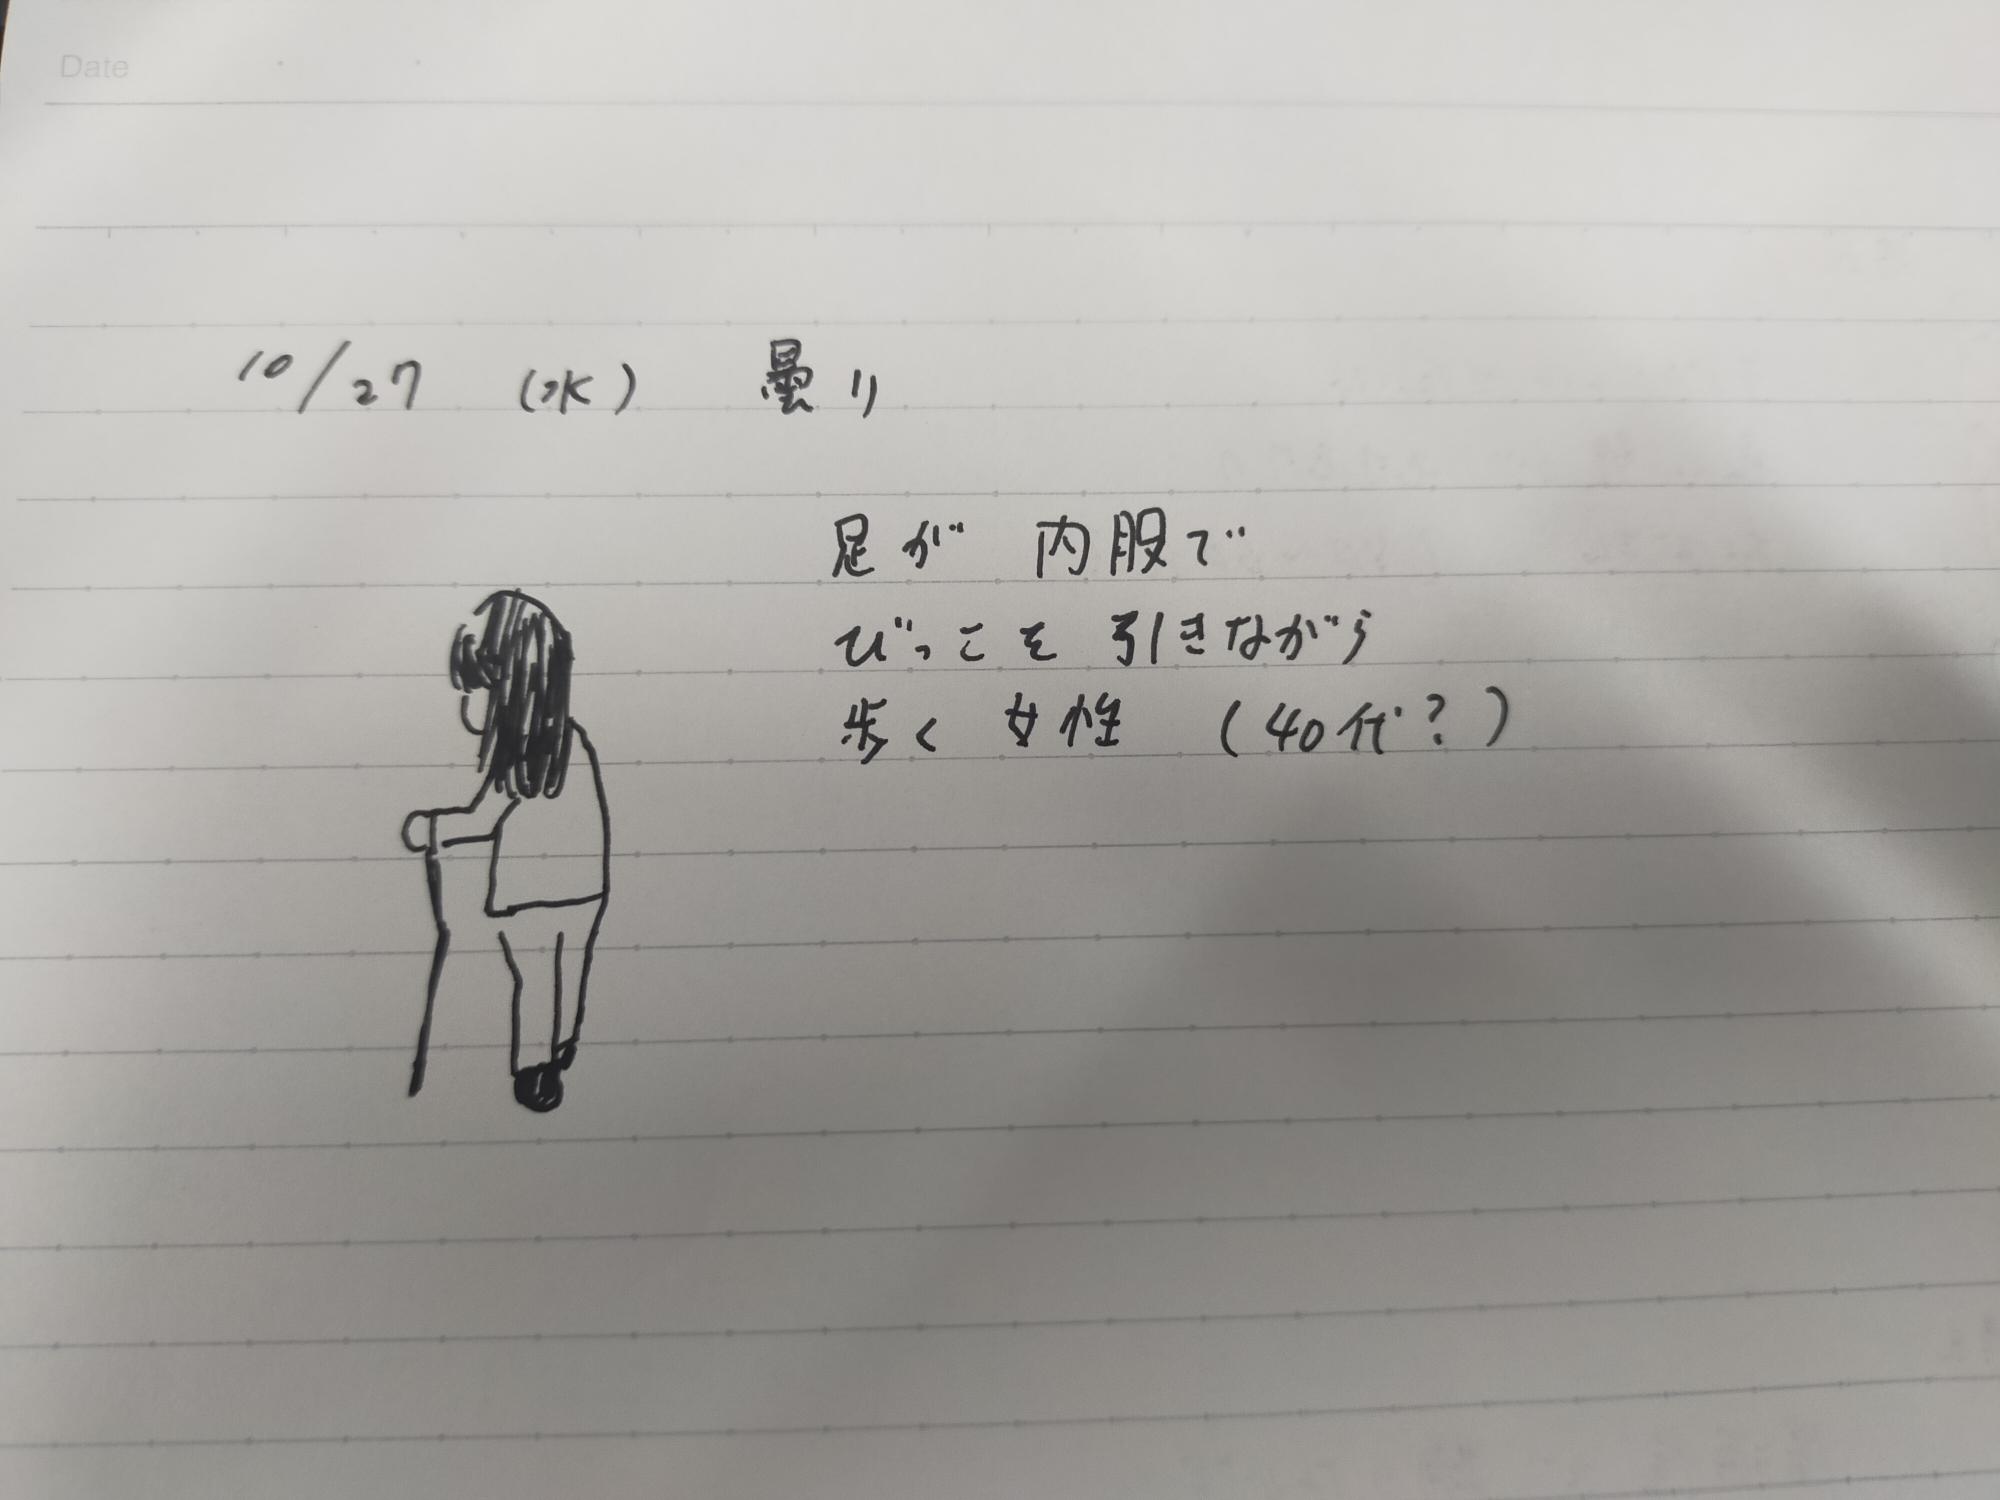 Date
10/27 (水) 曇り
足が 内股で
びっこを 引きながら
歩く 女性 (40代?)